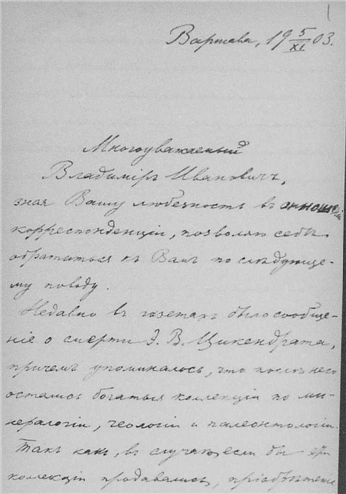 Варшава, 19 5/XI 03.
Многоуважаемый
Владиміръ Ивановичъ,
зная Вашу любезность въ
корреспонденціи, позволяю себѣ
обратиться къ Вамъ по слѣдующе-
му поводу.
Недавно въ газетахъ было сообще-
ніе о смерти Э. В. Цикендрата,
причемъ упоминалось, что послѣ него
остались богатыя коллекціи по ми-
нералогіи, геологіи и палеонтологіи.
Такъ какъ, въ случаѣ если бы эти
коллекціи продавались, пріобрѣтеніе